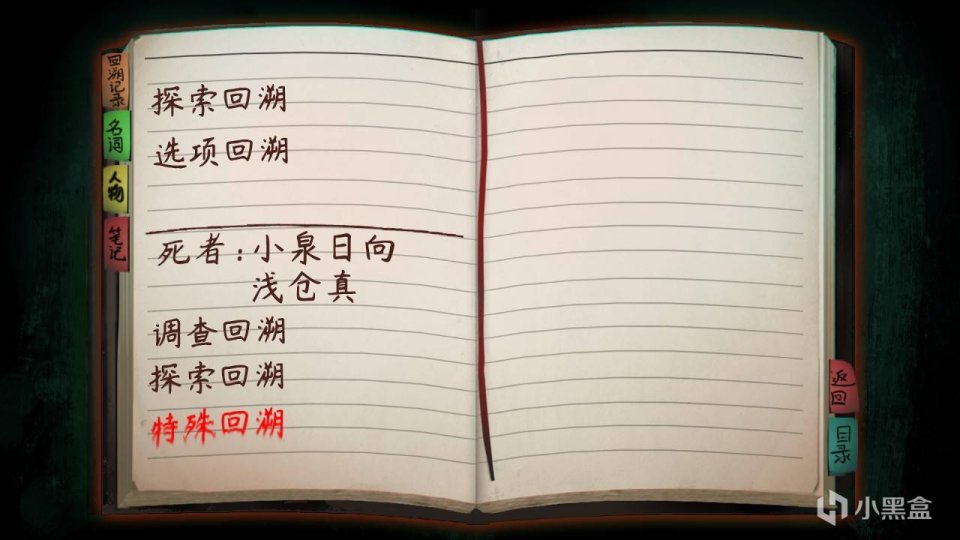 回溯记录
名词
人物
笔记
探索回溯
选项回溯
死者：小泉日向
浅仓真
调查回溯
探索回溯
特殊回溯
返回
目录
小黑盒